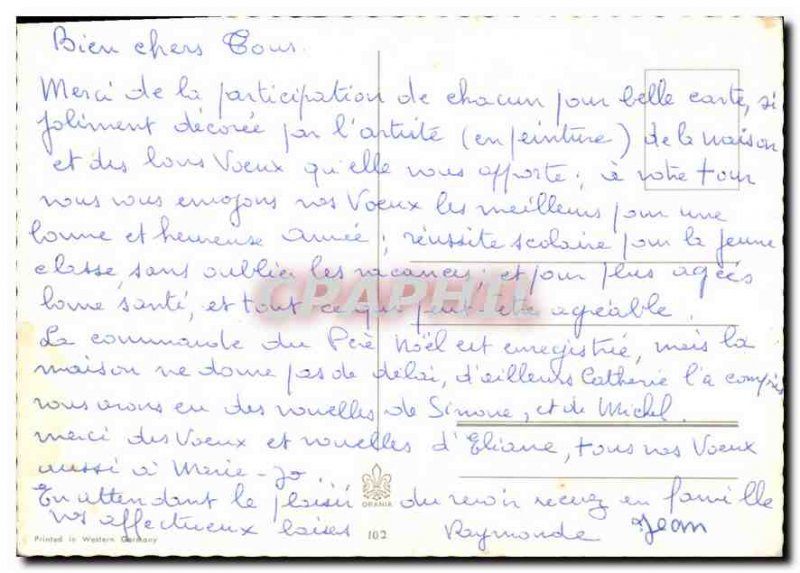 Bien chers Tous.
Merci de la participation de chacun pour belle carte, si
joliment décorée par l'artiste (en peinture) de la maison
et des bons Voeux qu'elle nous apporte ; à votre tour
nous vous envoyons nos Voeux les meilleurs pour une
bonne et heureuse année ; réussite scolaire pour la jeune
classe, sans oublier les vacances ; et pour plus agées
bonne santé, et tout ce qui peut être agréable.
CPAPHIL
La commande du Père Noël est enregistrée, mais la
maison ne donne pas de délai, d'ailleurs Catherie l'a compris
nous avons eu des nouvelles de Simone, et de Michel.
merci des Voeux et nouvelles d'Eliane, tous nos Voeux
aussi à Marie-Jo...
En attendant le plaisir du revoir recevez en famille
nos affectueux baises Raymonde Jean
KRANIA
102
Printed in Western Germany